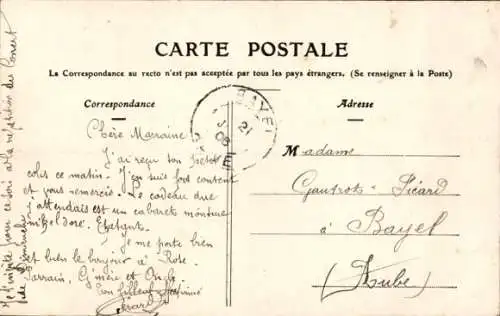 CARTE POSTALE
La Correspondance au recto n'est pas acceptée par tous les pays étrangers. (Se renseigner à la Poste)
Correspondance
Adresse
BAYEL
21
08
Chère Marraine
J'ai reçu ton
colis ce matin. J'en suis fort content
et vous remercie. Le cadeau que
j'attendais est un cabaret monture
nickel doré. Elégant.
Je me porte bien
et bien le bonjour à Rose
Parrain, et
Ton filleul
Gérard
Madame
Gautrot-Picard
à Bayel
(Aube)
pour ce soir à la répétition du Concert